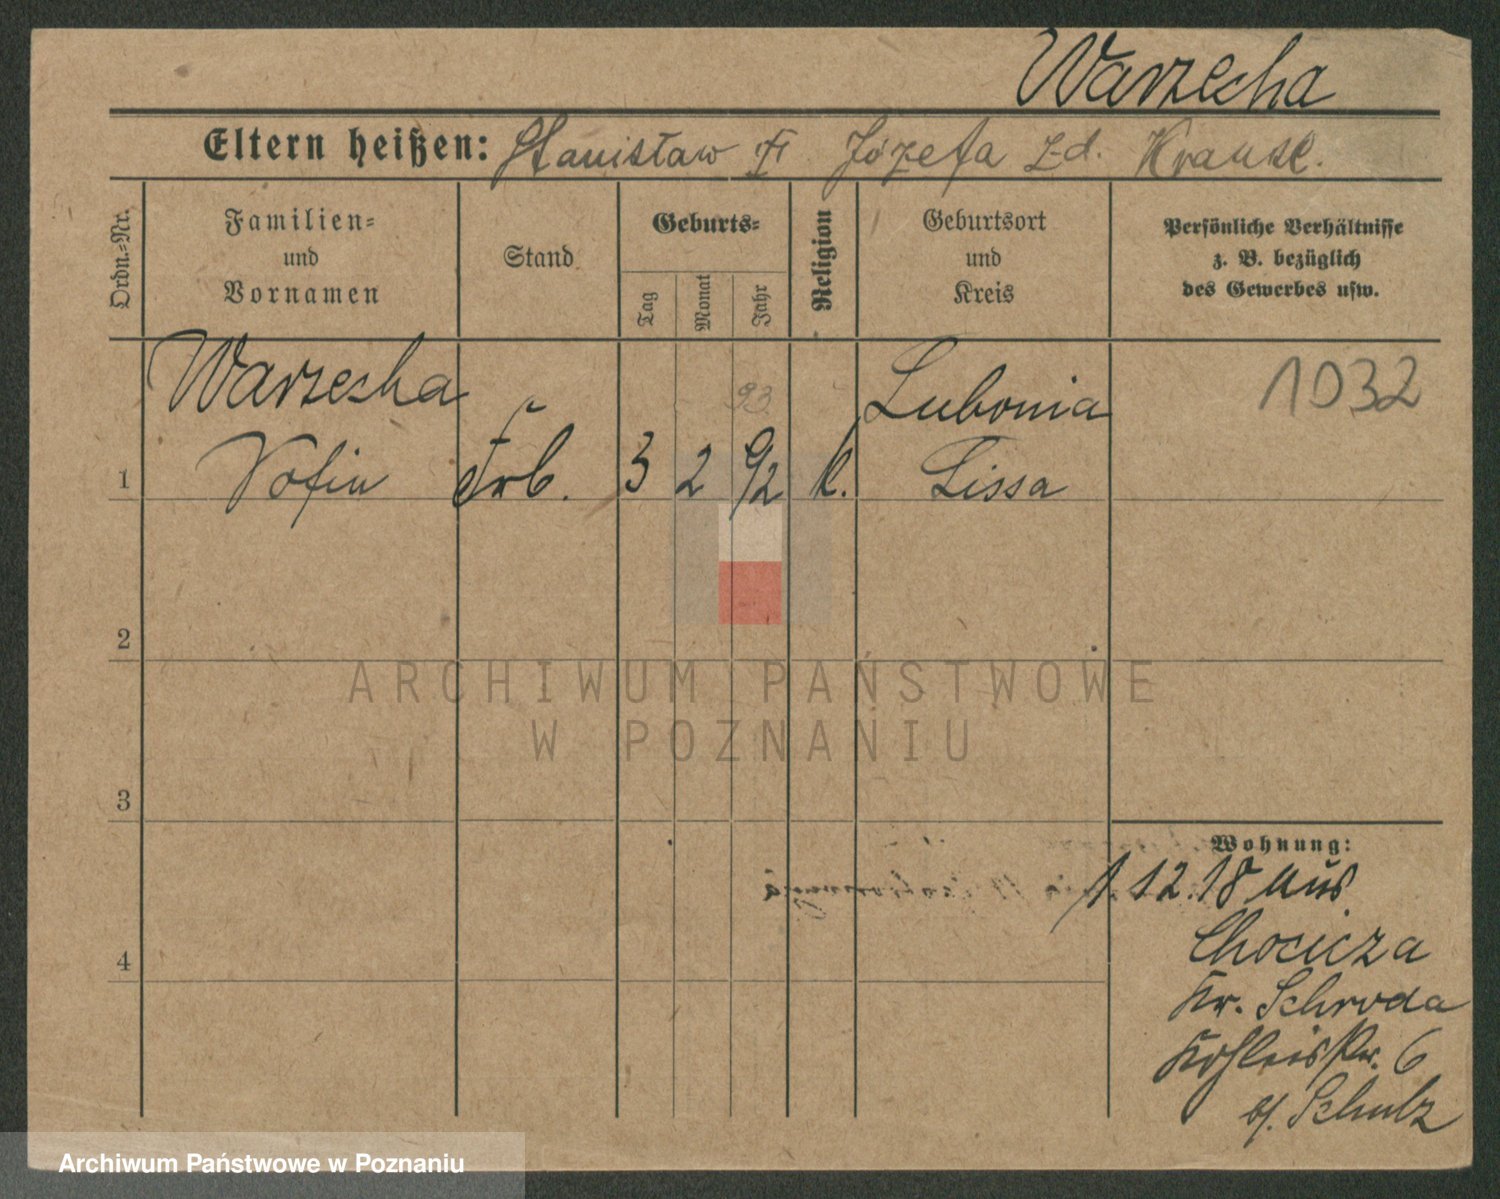 Warzecha
Eltern heißen: Stanisław i Józefa z d. Krause.
Ordn.=Nr.
Familien=
und
Vornamen
Stand
Geburts=
Tag
Monat
Jahr
Religion
Geburtsort
und
Kreis
Persönliche Verhältnisse
z. B. bezüglich
des Gewerbes usw.
Warzecha
93.
Lubonia
1032
1
Sofia
Arb.
3
2
92
k.
Lissa
2
ARCHIWUM PAŃSTWOWE
W POZNANIU
3
Wohnung:
1.12.18 aus
Chocicza
Kr. Schroda
6
b/. Schulz
4
Archiwum Państwowe w Poznaniu